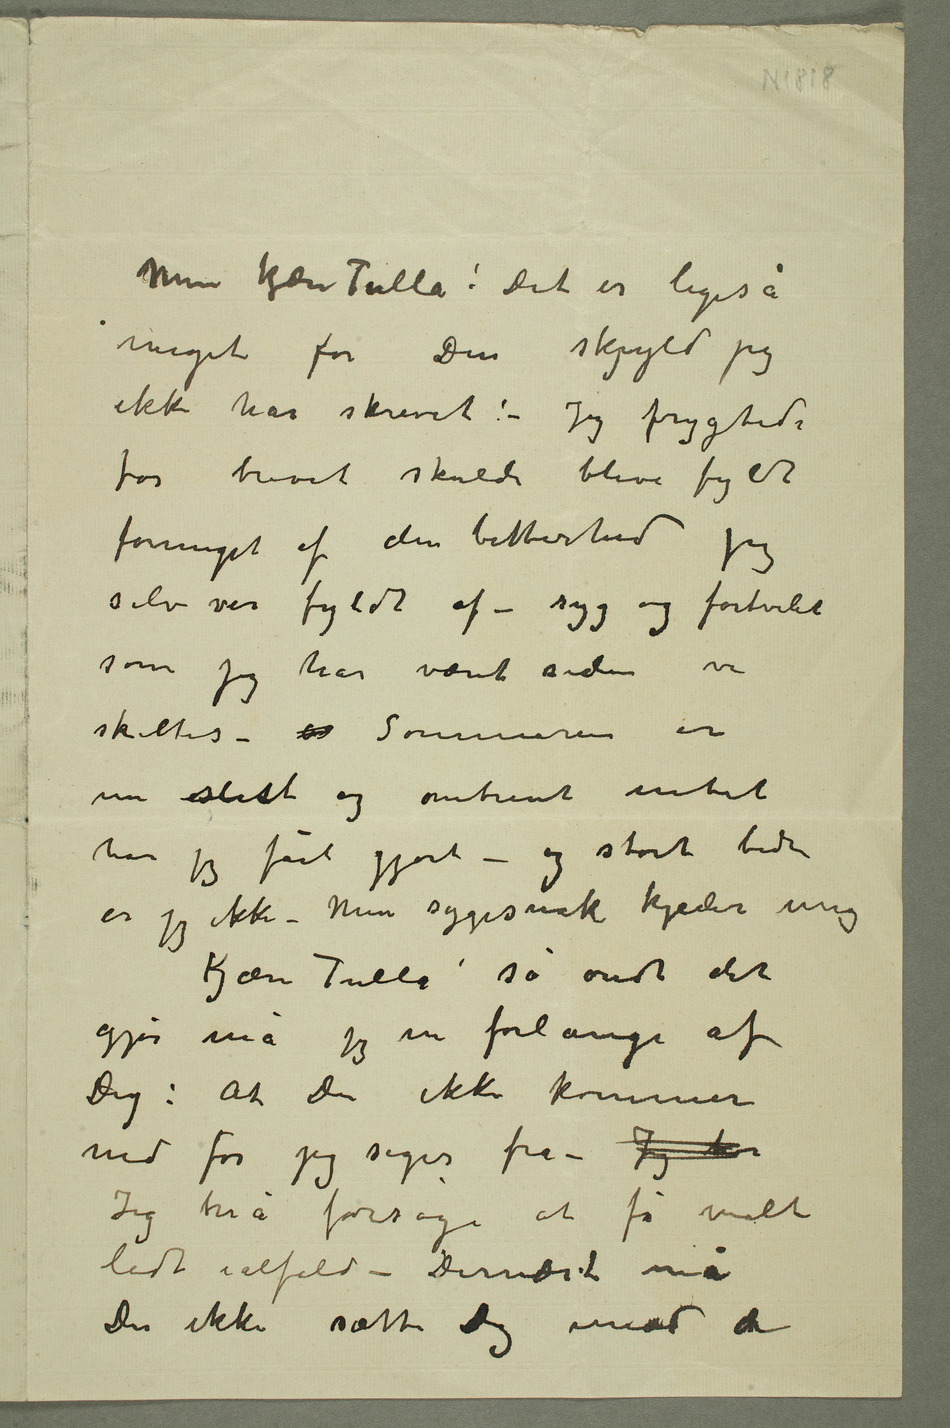 N1818
Min kjære Tulla! Det er ligeså
meget for Din skjyld jeg
ikke har skrevet! – Jeg frygtede
for brevet skulde blive fyldt
formeget af den bitterhed jeg
selv var fyldt af – syg og fortvilet
som jeg har været siden vi
skiltes – er Sommeren er
nu slut og omtrent intet
har jeg fåt gjort – og stort bedre
er jeg ikke – Min sygesnak kjeder mig
Kjære Tulla! så ondt det
gjør må jeg nu forlange af
Dig: At Du ikke kommer
ned før jeg siger fra – Jeg har
Jeg må forsøge at få malt
lidt ialfald – Dernæst må
Du ikke sætte Dig imod de